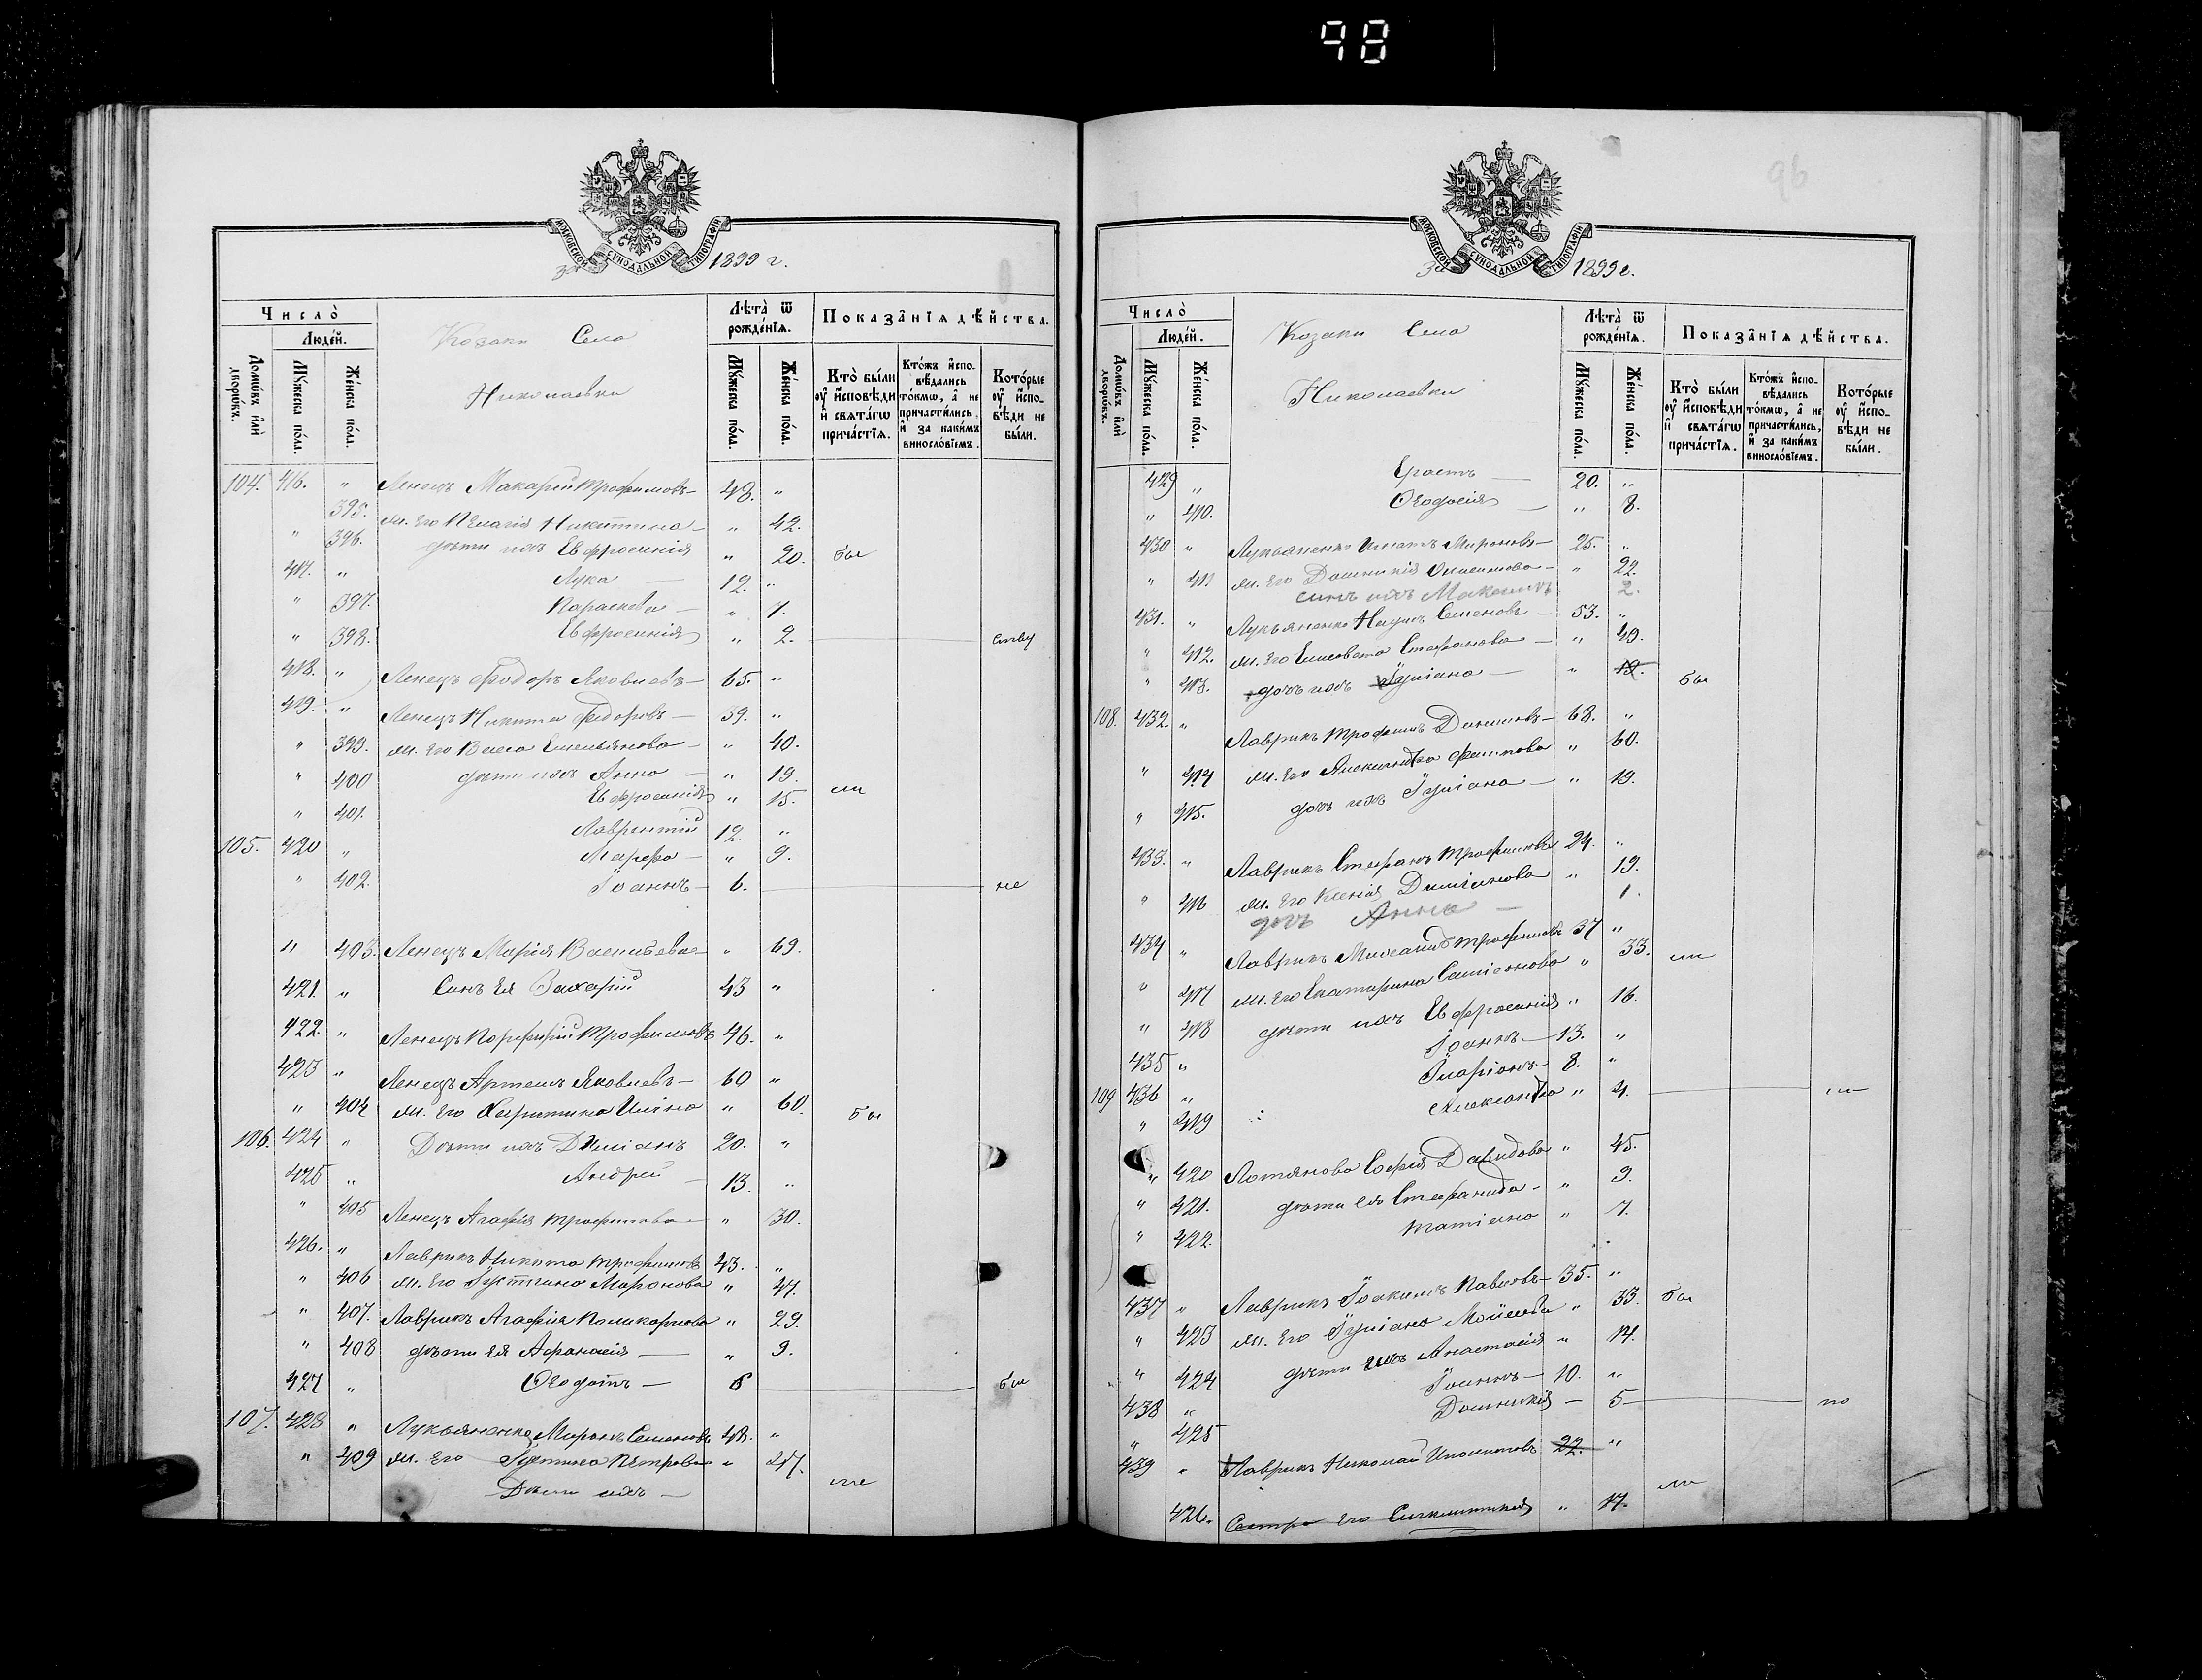 98
МОСКОВСКОЙ СУНОДАЛЬНОЙ ТИПОГРАФІИ
За 1899 г.
Число̀
Людей.
Домѡвъ и҆лѝ дворѡвъ.
Мꙋжеска по́ла.
Же́нска по́ла.
Козаки Села
Николаевки
Лѣта̀ ѿ рожде́нїѧ.
Мꙋжеска по́ла.
Же́нска по́ла.
Показа̑нїѧ дѣ́йства.
Кто̀ бы́ли ᲂу҆ и҆сповѣди и҆ свѧта́гѡ причастїѧ.
Кто́жъ и҆спо-вѣдались то́кмѡ, а҆ не причасти́лись, и҆ за каки́мъ винослові́емъ.
Кото́рые ᲂу҆ и҆спо-вѣди не бы́ли.
104. 416. " Ленецъ Макарій Трофимовъ — 48. "
395. ж. его Пелагія Никитина — " 42.
" 396. дѣти ихъ Евфросинія " 20. бы
417. " Лука — 12. "
" 397. Параскева — " 7.
" 398. Евфросинія " 2.
418. " Ленецъ Ѳеодоръ Яковлевъ — 65. "
419. " Ленецъ Никита Федоровъ — 39. "
" 399. ж. его Васса Емельянова — " 40.
" 400 дѣти ихъ Анна — " 19.
" 401. Евфросинія " 15. ли
105. 420 " Лаврентій 12. "
Марфа — " 9.
" 402. Іоаннъ — 6. не
" 403. Ленецъ Марія Васильева " 69.
421. " Сынъ ея Захарій 43 "
422. " Ленецъ Порфирій Трофимовъ 46. "
423 " Ленецъ Артемъ Яковлевъ — 60 "
" 404 ж. его Харитина Ильина " 60. бы
106. 424 " Дѣти ихъ Диміанъ 20. "
425 " Андрей — 13. "
" 405 Ленецъ Агафія Трофимова — " 30.
426. " Лаврикъ Никита Трофимовъ 43. "
" 406 ж. его Іустина Миронова " 47.
" 407. Лаврикъ Агафія Поликарпова " 29.
" 408 дѣти ея Афанасія — " 9.
427 " Ѳеодотъ — 6 бы
107. 428 " Лукьяненко Миронъ Семеновъ 48. "
" 409 ж. его Іустина Петрова " 47. ли
Дѣти ихъ —
96
МОСКОВСКОЙ СУНОДАЛЬНОЙ ТИПОГРАФІИ
За 1899 г.
Число̀
Людей.
Домѡвъ и҆лѝ дворѡвъ.
Мꙋжеска по́ла.
Же́нска по́ла.
Козаки Села
Николаевки
Лѣта̀ ѿ рожде́нїѧ.
Мꙋжеска по́ла.
Же́нска по́ла.
Показа̑нїѧ дѣ́йства.
Кто̀ бы́ли ᲂу҆ и҆сповѣди и҆ свѧта́гѡ причастїѧ.
Кто́жъ и҆спо-вѣдались то́кмѡ, а҆ не причасти́лись, и҆ за каки́мъ винослові́емъ.
Кото́рые ᲂу҆ и҆спо-вѣди не бы́ли.
429 " Ерастъ — 20. "
" 410. Ѳеодосія — " 8.
430 " Лукьяненко Игнатъ Мироновъ — 25. "
" 411 ж. его Домникія — " 22.
сынъ ихъ Максимъ 2.
431. " Лукьяненко Наумъ Семеновъ — 53. "
" 412. ж. его Елисавета Стефанова — " 49.
" 413. дочь ихъ Іуліана — " 12. бы
108. 432. " Лаврикъ Трофимъ Даниловъ — 68. "
" 414 ж. его Александра Филипова " 60.
" 415. дочь ихъ Іуліана — " 19.
433. " Лаврикъ Стефанъ Трофимовъ 24. "
" 416 ж. его Ксенія Диміанова " 19.
дочь Анна — 1.
434 " Лаврикъ Михаилъ Трофимовъ 37 "
" 417 ж. его Екатерина " 33. ли
" 418 дѣти ихъ Евфросинія " 16.
Іоаннъ — 13. "
435 " Иларіонъ 8. "
109 436 " Александра " 4.
" 419
" 420 Софія Давидова " 45.
" 421. дѣти ея Стефанида — " 9.
" 422. Татіана " 7.
437 " Лаврикъ Іоакимъ Павловъ — 35. "
" 423 ж. его Іуліана Моисеева " 33. бы
" 424 дѣти ихъ Анастасія " 14.
Іоаннъ — 10. "
438 " Домникія — 5
" 425
439 " Лаврикъ Николай Иполитовъ 22. "
426. Сестра его Синклитикія " 17. ли